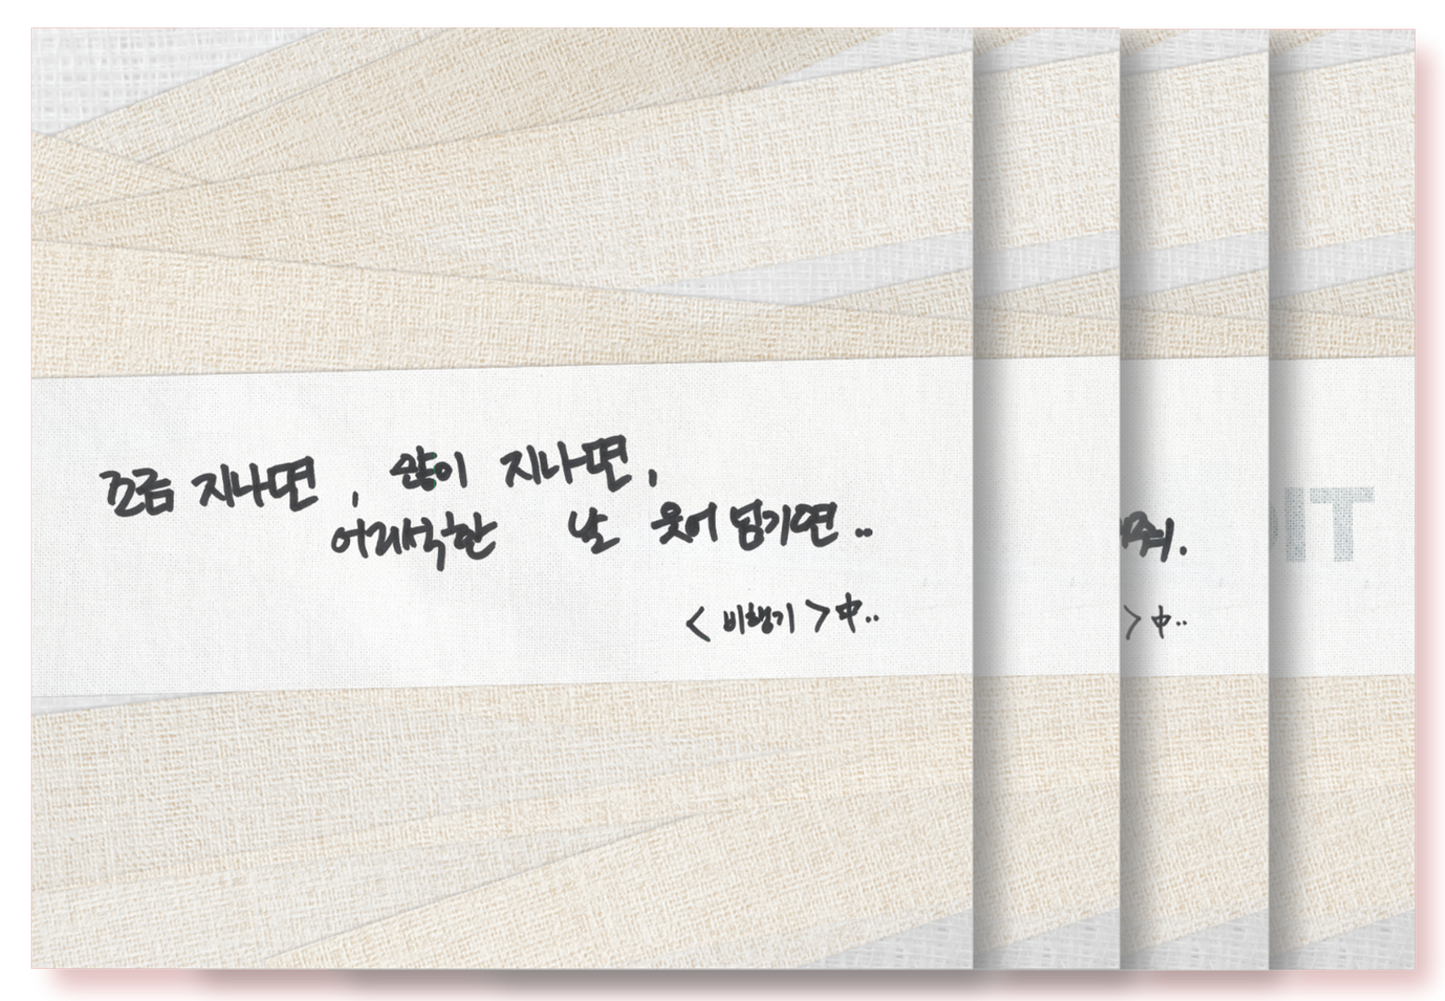 조금 지나면, 많이 지나면,
어리석한 날 웃어 넘기면..
<비행기>中..
줘.
>中..
IT